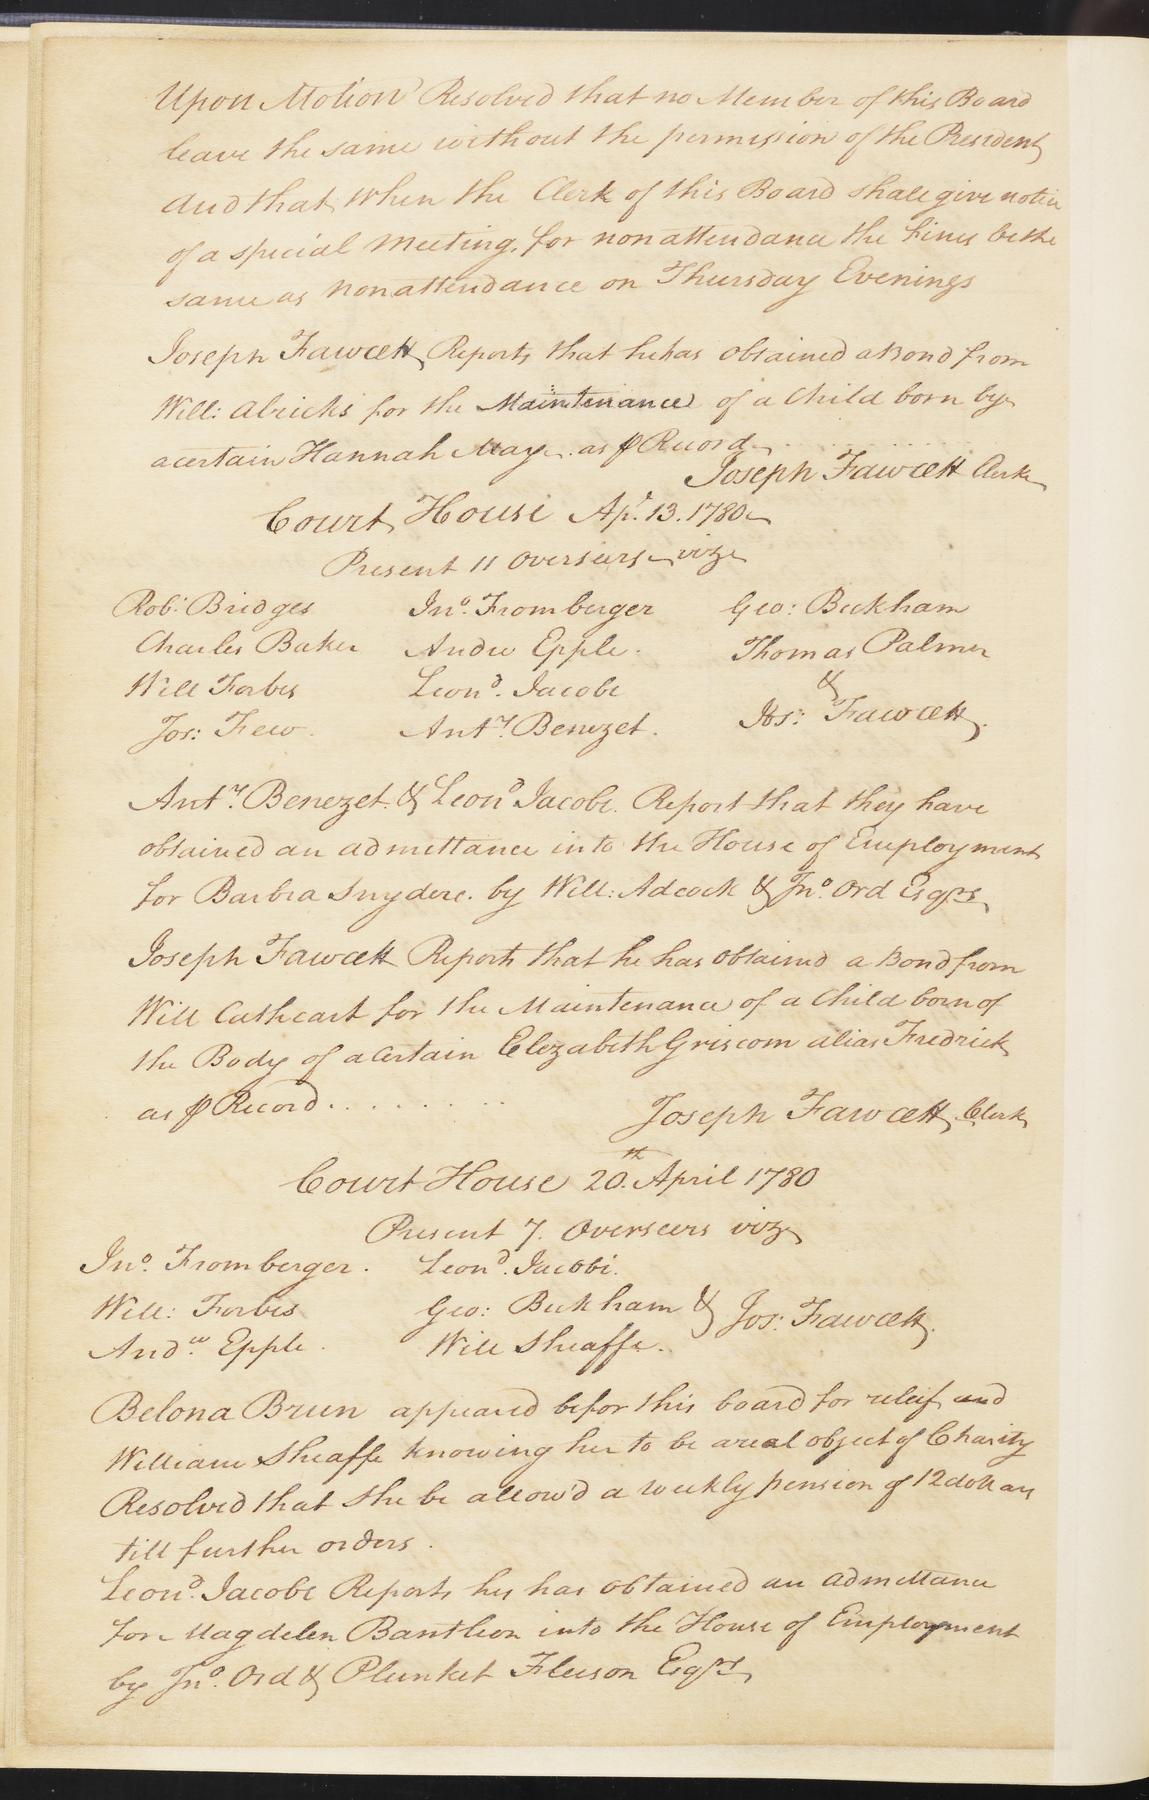 Upon Motion Resolved that no Member of this Board
leave the same without the permission of the President
And that when the Clerk of this Board shall give notice
of a special Meeting, for nonattendance the fines be the
same as nonattendance on Thursday Evenings
Joseph Fawcett Reports that he has obtained a Bond from
Will: Alricks for the Maintenance of a Child born by
a certain Hannah May. as ⅌ Record
Joseph Fawcett Clerk
Court House Apl. 13. 1780
Present 11 Overseers viz
Robt. Bridges Jno. Fromberger Geo: Beckham
Charles Baker Andw Epple. Thomas Palmer
Will Forbes Leond. Jacobe &
Jos: Few. Anty. Benezet. Jos: Fawcett.
Anty. Benezet. & Leond Jacobe. Report that they have
obtained an admittance into the House of Employment
for Barbra Snydere. by Will: Adcock & Jno. Ord Esqrs
Joseph Fawcett Reports that he has obtained a Bond from
Will Cathcart for the Maintenance of a Child born of
the Body of a Certain Elezabeth Griscom alias Fredrick
as ⅌ Record. . . . . . . . .
Joseph Fawcett, Clerk
Court House 20th. April 1780
Present 7. Overseers viz
Jno. Fromberger. Leond. Jacobi.
Will: Forbes Geo: Beckham & Jos: Fawcett.
Andw. Epple. Will Sheaffe.
Belona Brun appeared befor this board for releif and
William Sheaffe knowing her to be a real object of Charity
Resolved that she be allow'd a weekly pension of 12 dollars
till further orders.
Leond. Jacobe Reports hes has obtained an admittance
for Magdelen Bantleon into the House of Employment
by Jno. Ord & Plunket Fleeson Esqrs